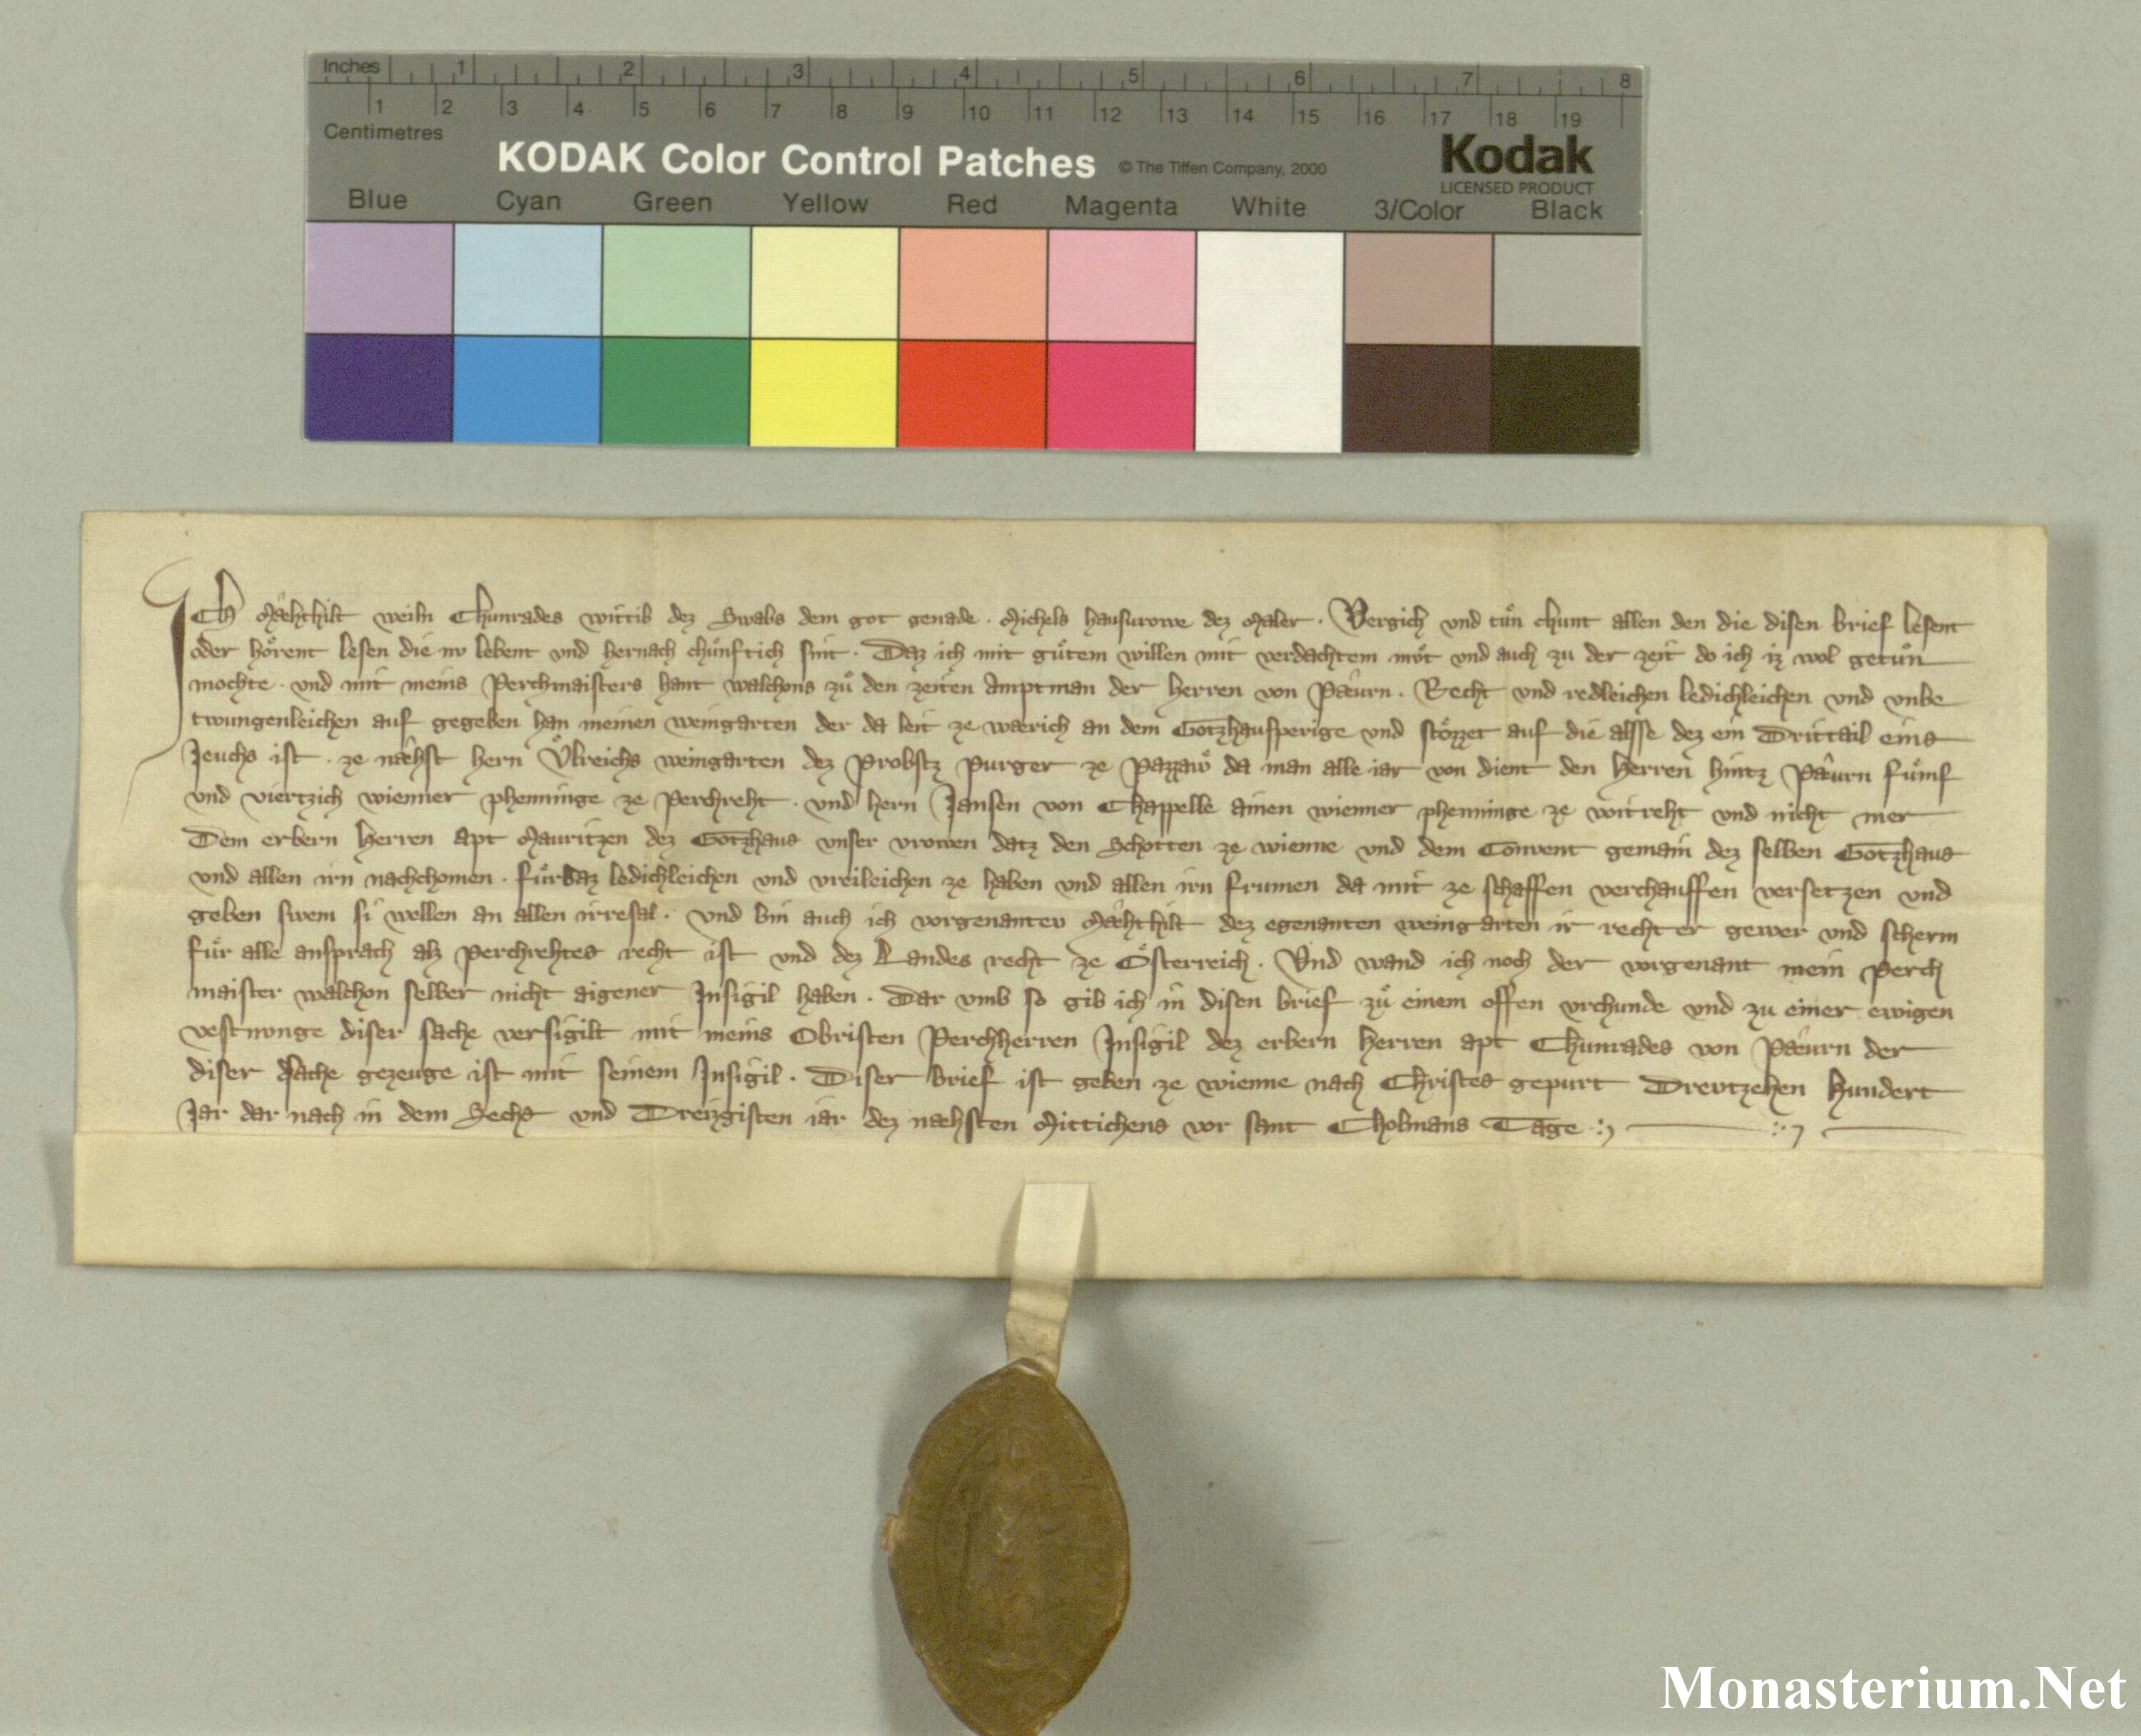 Inches 1 2 3 4 5 6 7 8
1 2 3 4 5 6 7 8 9 10 11 12 13 14 15 16 17 18 19
Centimetres
KODAK Color Control Patches © The Tiffen Company, 2000 Kodak
LICENSED PRODUCT
Blue Cyan Green Yellow Red Magenta White 3/Color Black
ICh Mæhthilt weiln Chunrades wittib dez Swabs dem got genade . Michels hausvrowe dez Maler . Vergich vnd tuͤn chunt allen den die disen brief lesent
oder hoͤrent lesen die nv lebent vnd hernach chuͤnftich sint . Daz ich mit guͤtem willen mit verdachtem muͦt vnd auch zu der zeit do ich iz wol getuͦn
mochte . vnd mit meins Perchmaisters hant walchons zuͦ den zeiten Amptman der Herren von Paeurn . Recht vnd redleichen ledichleichen vnd vnbe
twungenleichen auf gegeben han meinen weingarten der da leit ze wærich an dem Gotzhausperige vnd stoͤzzet auf die alsse dez ein Drittail eins
Jeuchs ist . ze næhst hern Ůlreichs weingarten dez Probstz purger ze Pazzawͦ da man alle iar von dient den Herren hintz Paeurn fuͤmf
vnd viertzich wienner phenninge ze perchreht . vnd hern Jansen von Chappelle ainen wienner phenninge ze voitreht vnd nicht mer
Dem erbern Herren apt Mauritzen dez Gotzhaus vnser vrowen datz den Schotten ze wienne vnd dem Convent gemain dez selben Gotzhaus
vnd allen irn nachchomen . fuͤrbaz ledichleichen vnd vreileichen ze haben vnd allen irn frumen da mit ze schaffen verchauffen versetzen vnd
geben swem si wellen an allen irresal . vnd bin auch ich vorgenantev Mæhthilt dez egenanten weingarten ir rechter gewer vnd scherm
fuͤr alle ansprach alz perchrehtes recht ist vnd dez Landes recht ze Oͤsterreich . Vnd wand ich noch der vorgenant mein perch
maister walchon selber nicht aigener Insigil haben . Dar vmb so gib ich in disen brief zuͦ einem offen vrchunde vnd zu einer ewigen
vestnunge diser sache versigilt mit meins Obristen Perchherren Insigil dez erbern Herren apt Chunrades von Paeurn der
diser sache gezeuge ist mit seinem Insigil . Diser brief ist geben ze wienne nach Christes gepurt Drevtzehen Hundert
Jar dar nach in dem Sechs vnd Dreizgisten iar dez næhsten Mittichens vor sant Cholmans Tage
Monasterium.Net